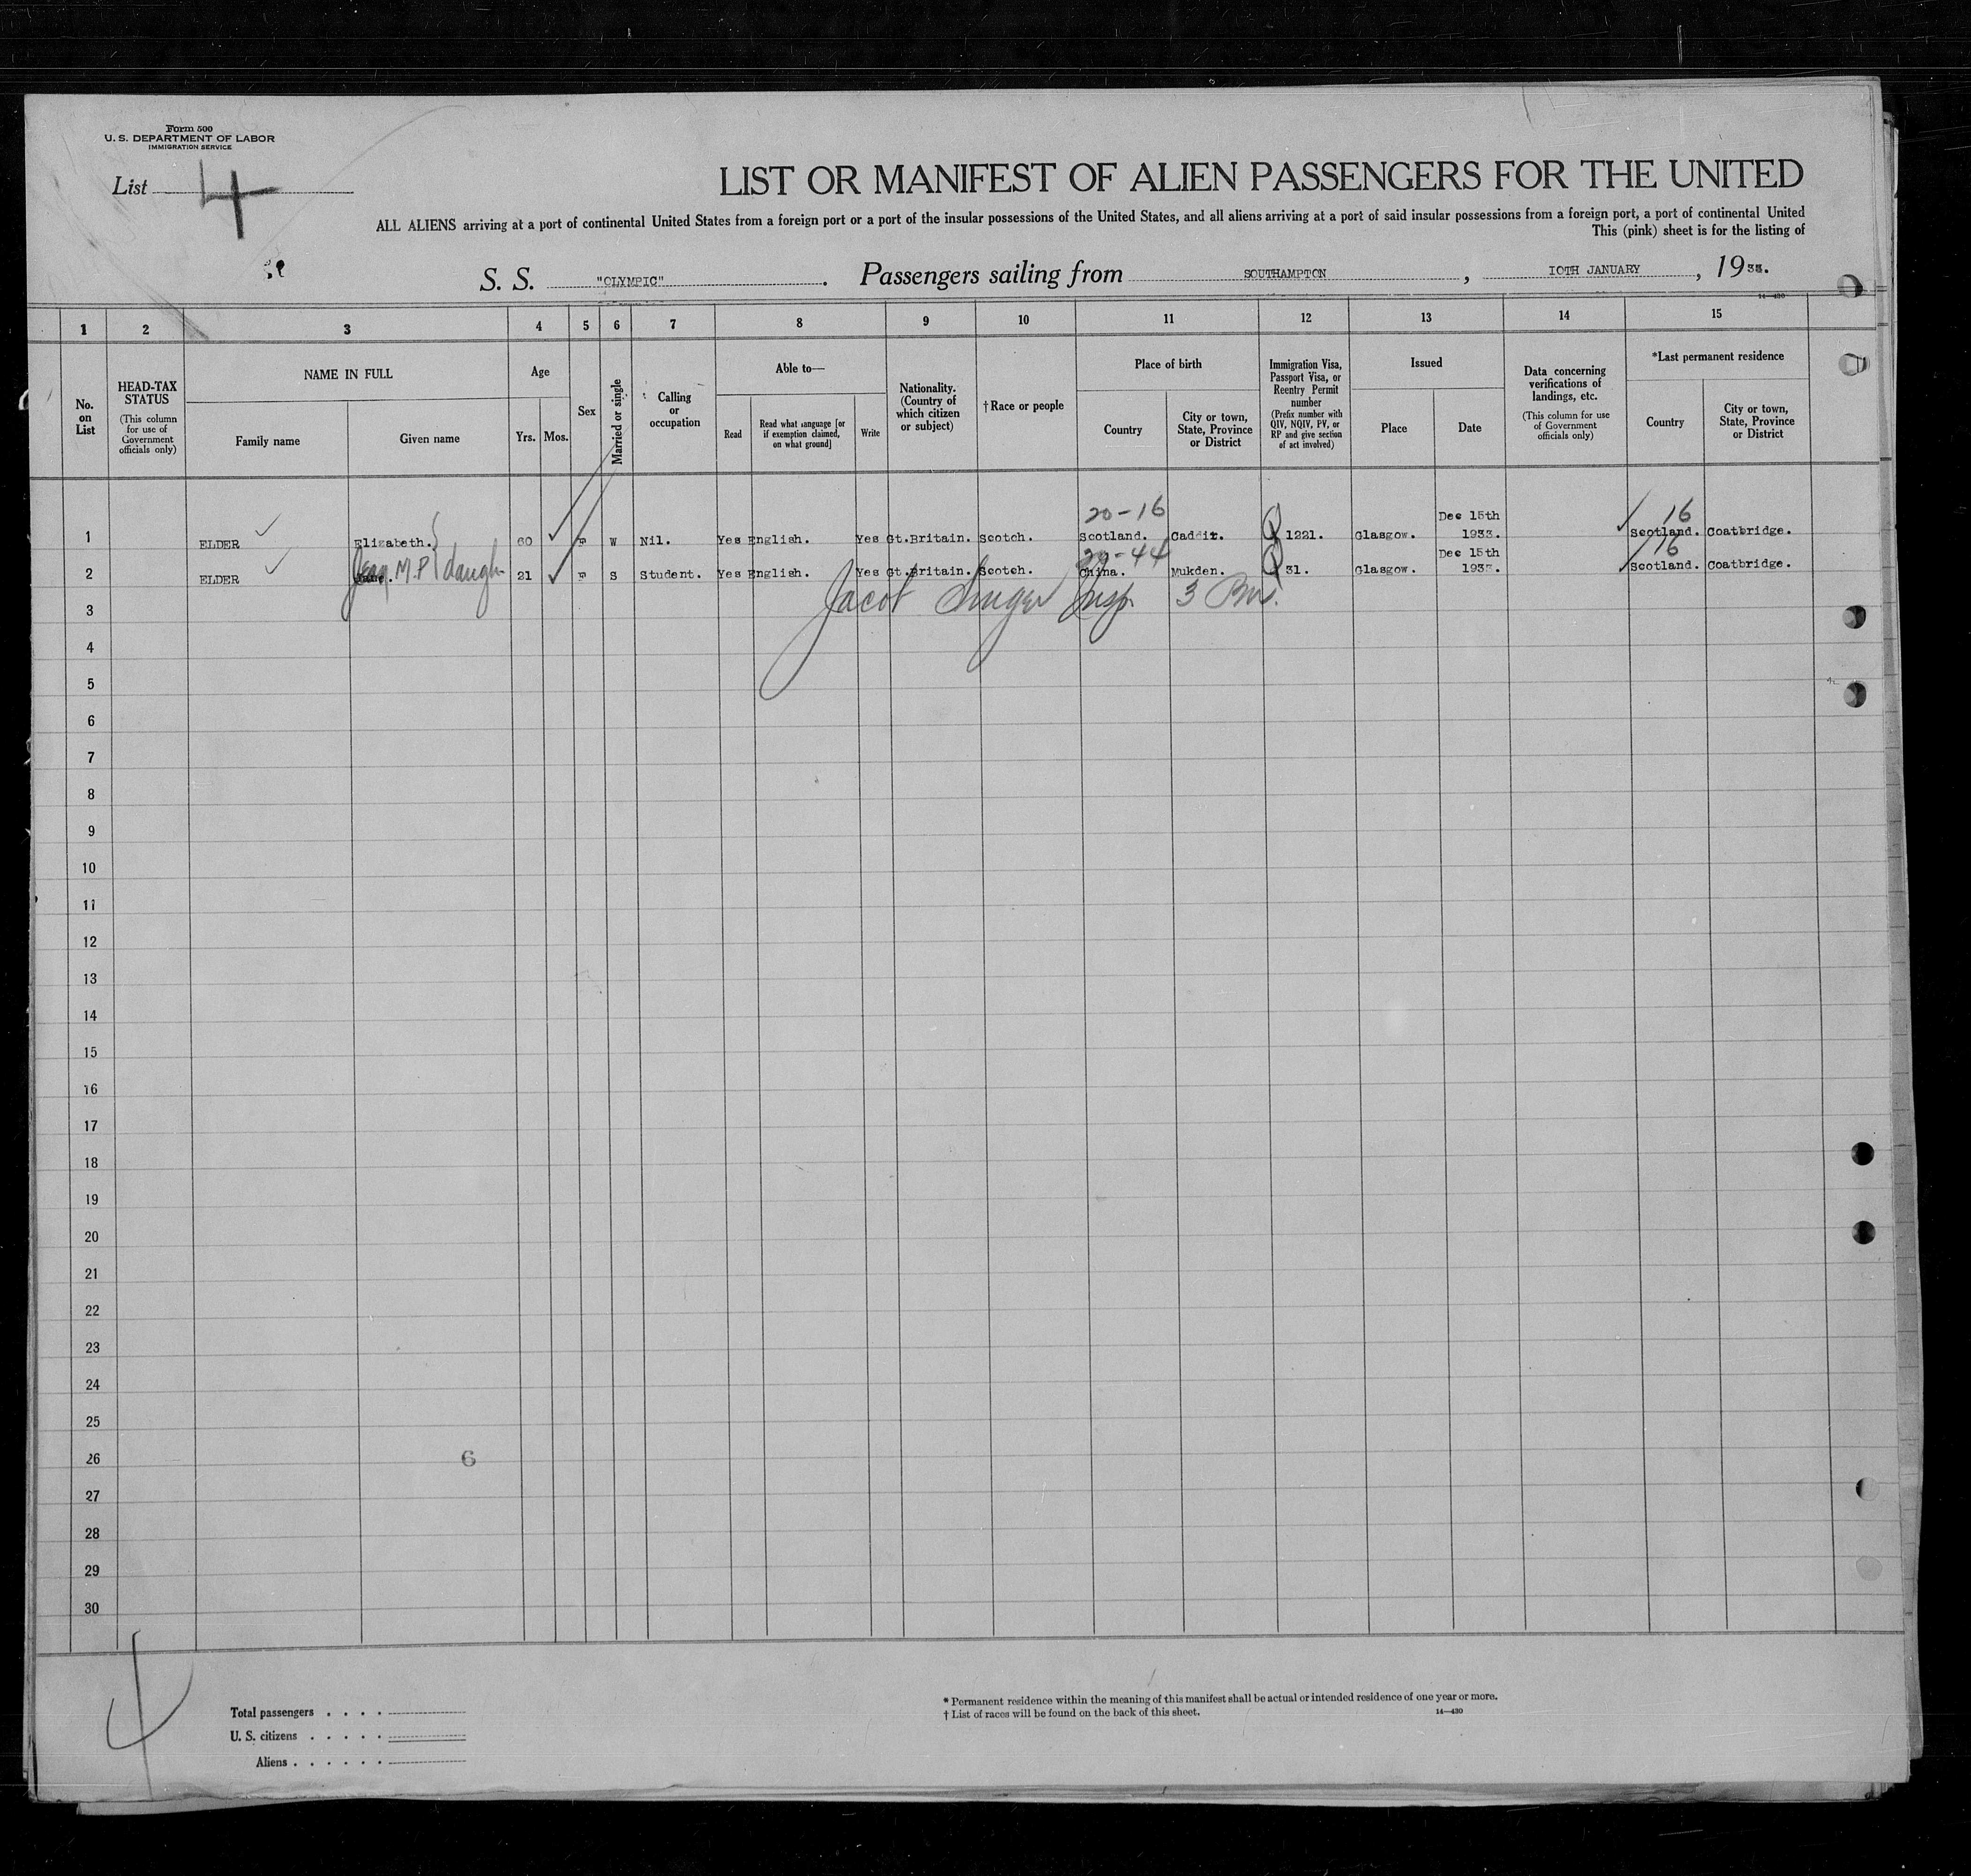 Form 500
U. S. DEPARTMENT OF LABOR
IMMIGRATION SERVICE
List 4
LIST OR MANIFEST OF ALIEN PASSENGERS FOR THE UNITED
ALL ALIENS arriving at a port of continental United States from a foreign port or a port of the insular possessions of the United States, and all aliens arriving at a port of said insular possessions from a foreign port, a port of continental United
This (pink) sheet is for the listing of
S. S. "OLYMPIC". Passengers sailing from SOUTHAMPTON, 10TH JANUARY, 19
14—430
1 2 3 4 5 6 7 8 9 10 11 12 13 14 15
No. on List
HEAD-TAX STATUS
(This column for use of Government officials only)
NAME IN FULL
Family name
Given name
Age
Yrs.
Mos.
Sex
Married or single
Calling or occupation
Able to—
Read
Read what language [or if exemption claimed, on what ground]
Write
Nationality. (Country of which citizen or subject)
†Race or people
Place of birth
Country
City or town, State, Province or District
Immigration Visa, Passport Visa, or Reentry Permit number
(Prefix number with QIV, NQIV, PV, or RP and give section of act involved)
Issued
Place
Date
Data concerning verifications of landings, etc.
(This column for use of Government officials only)
*Last permanent residence
Country
City or town, State, Province or District
20-16 Dec 15th 16
1 ELDER Elizabeth. 60 F W Nil. Yes English. Yes Gt.Britain. Scotch. Scotland. Q 1221. Glasgow. 1933. Scotland. Coatbridge.
Dec 15th 16
2 ELDER Jean M.P. daugh 21 F S Student. Yes English. Yes Gt.Britain. Scotch. China. Mukden. Q 31. Glasgow. 1933. Scotland. Coatbridge.
3 Jacob Singer Insp
4
5
6
7
8
9
10
11
12
13
14
15
16
17
18
19
20
21
22
23
24
25
26 6
27
28
29
30
4
Total passengers . . . .
U. S. citizens . . . . .
Aliens . . . . . .
* Permanent residence within the meaning of this manifest shall be actual or intended residence of one year or more.
† List of races will be found on the back of this sheet. 14—430